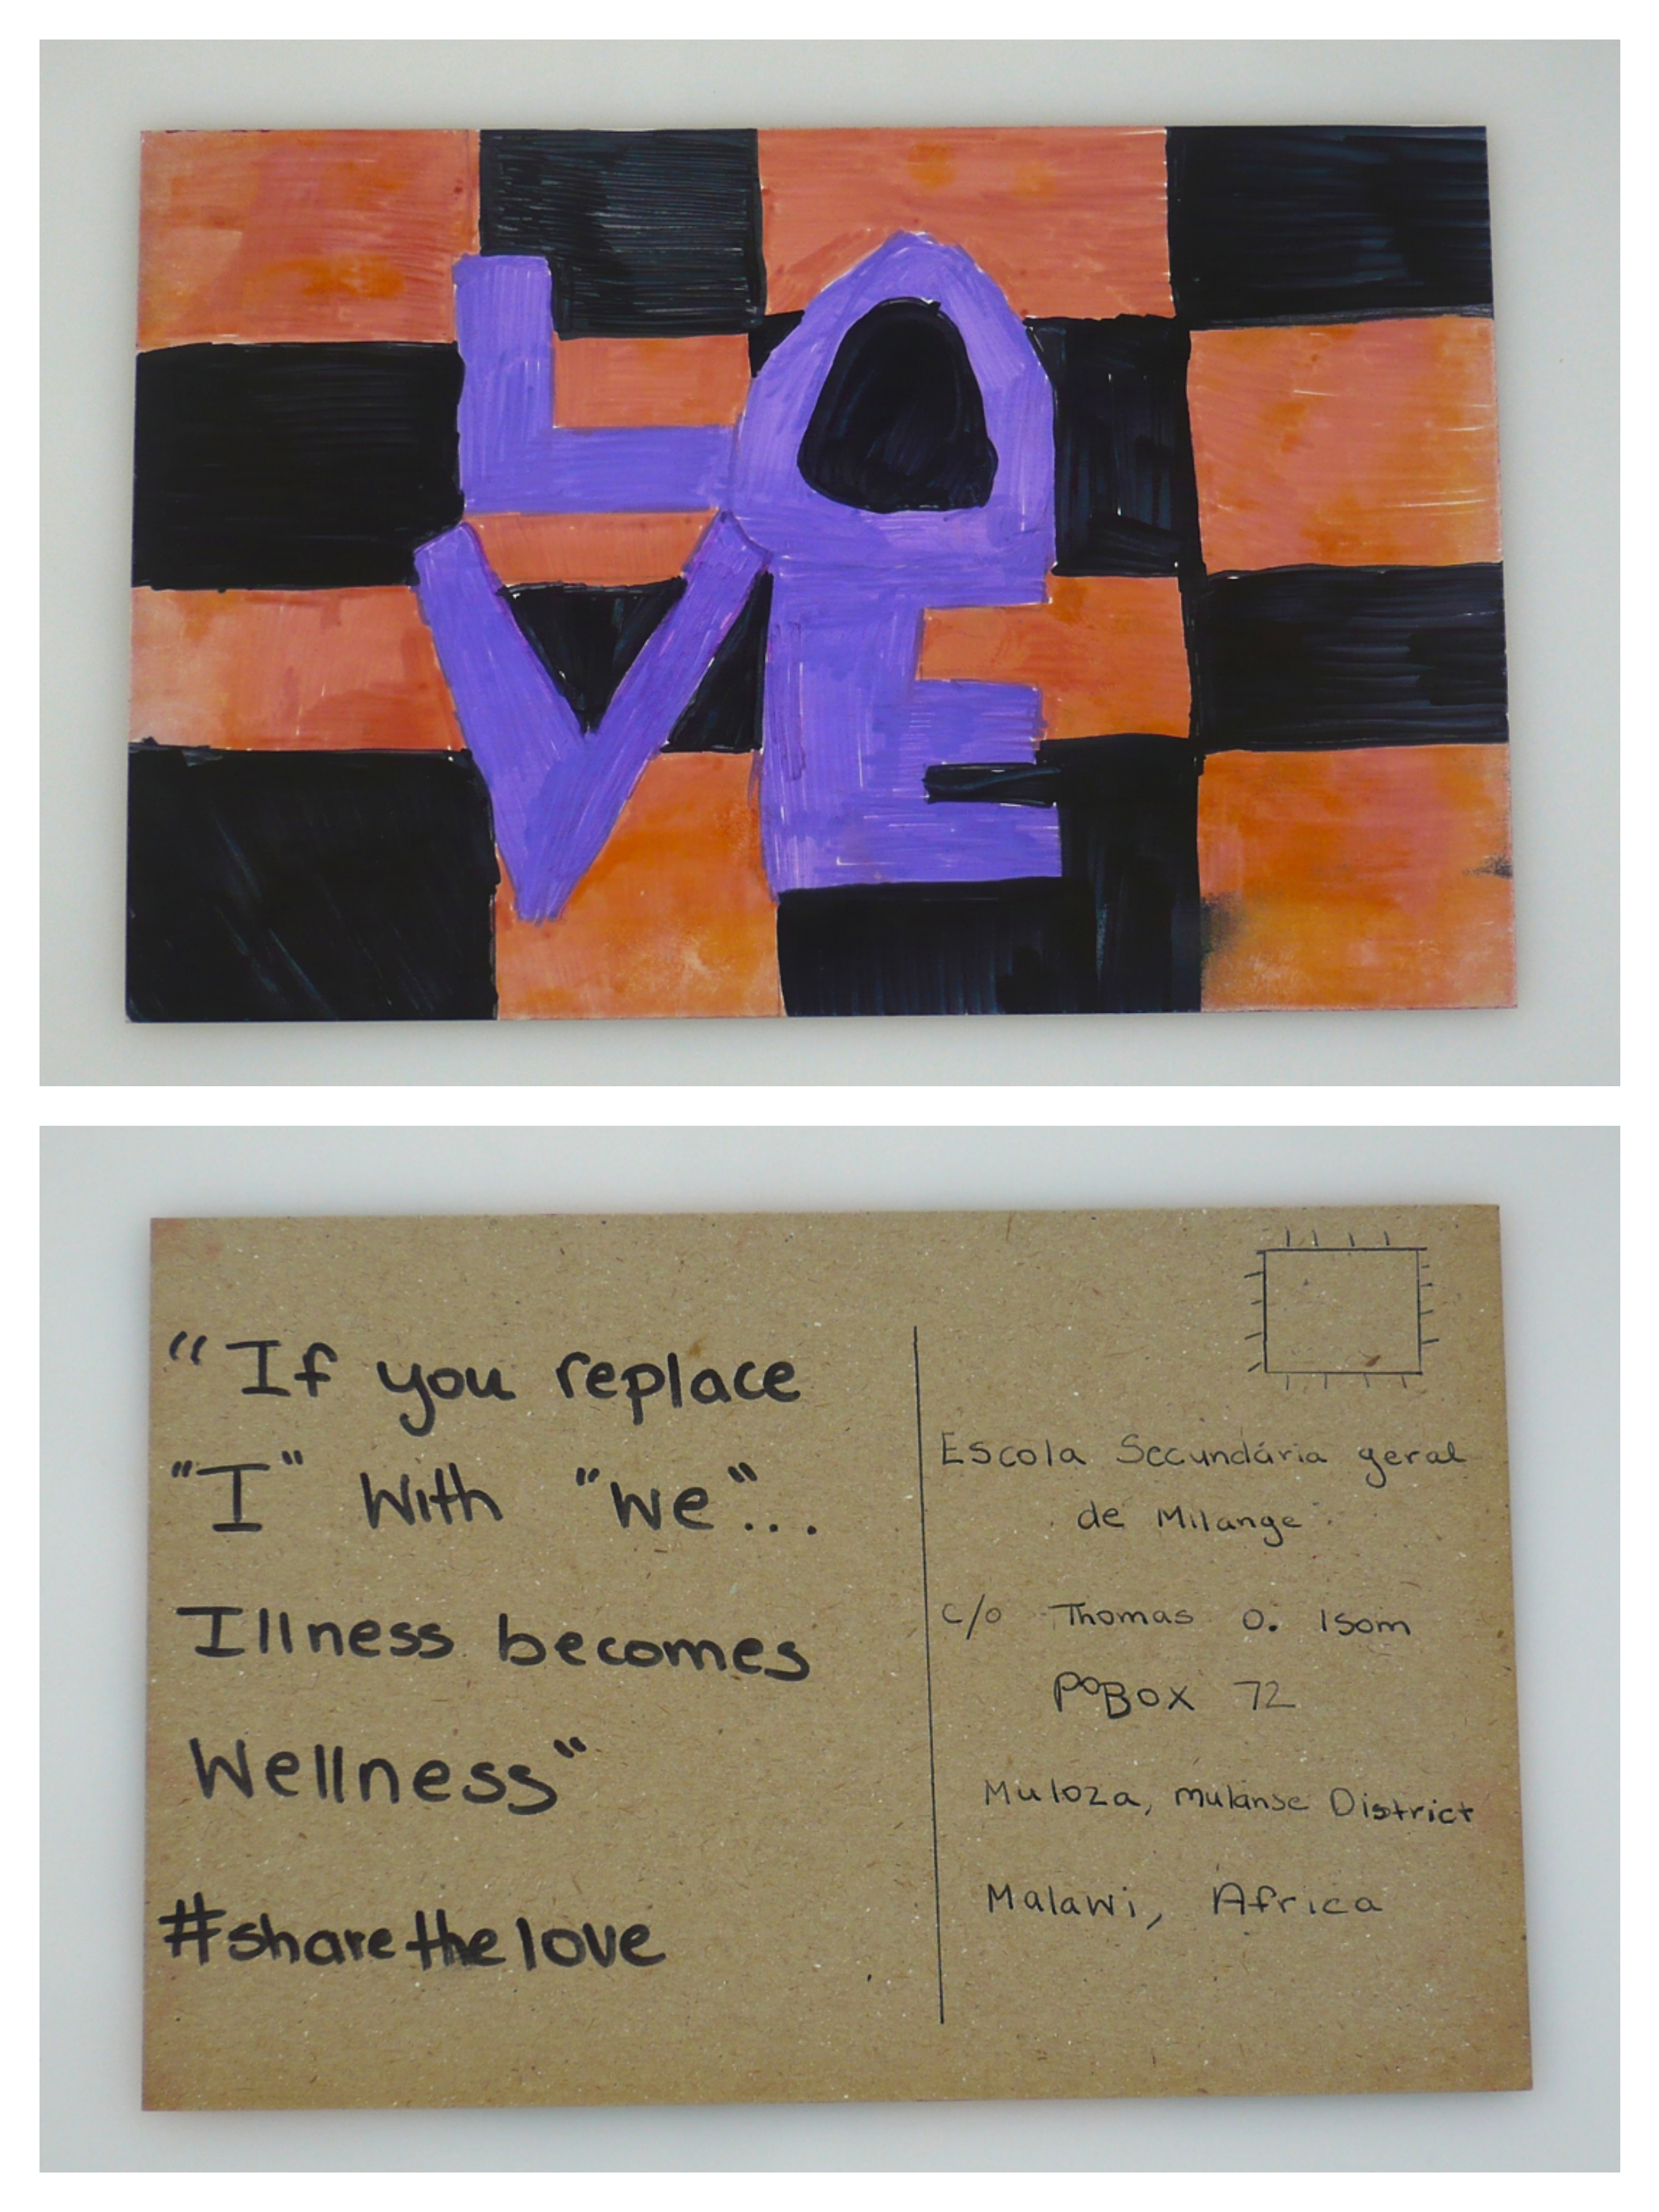 LO
VE
"If you replace
"I" With "We"...
Illness becomes
Wellness"
#sharethelove
Escola Secundária geral
de Milange
c/o Thomas O. Isom
PO Box 72
Muloza, mulanse District
Malawi, Africa